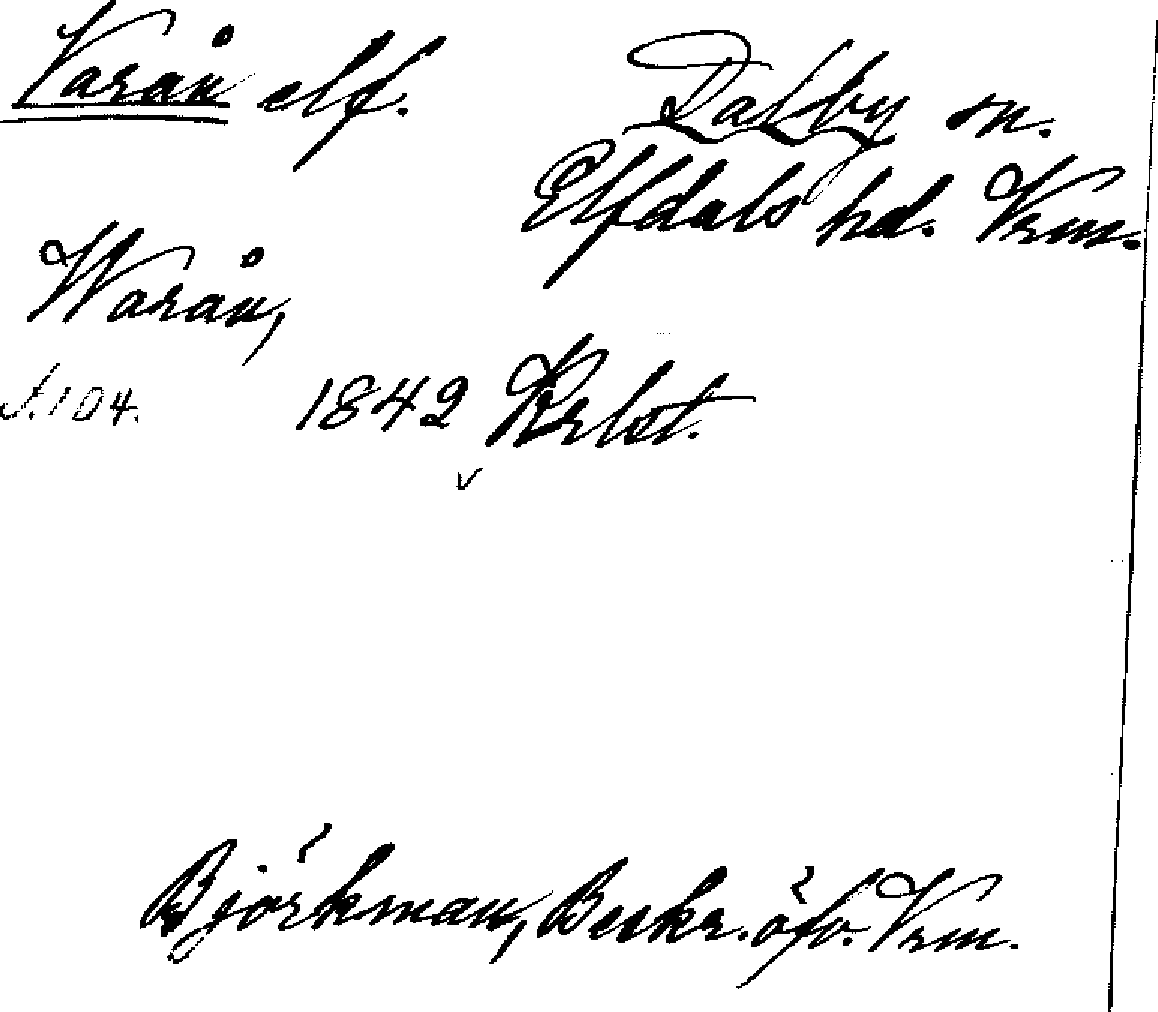 Varån elf.
Dalby sn.
Elfdals hd. Vrm.
Warån,
s. 104. 1842 Krlst.
Björkman, Beskr. öfv. Vrm.